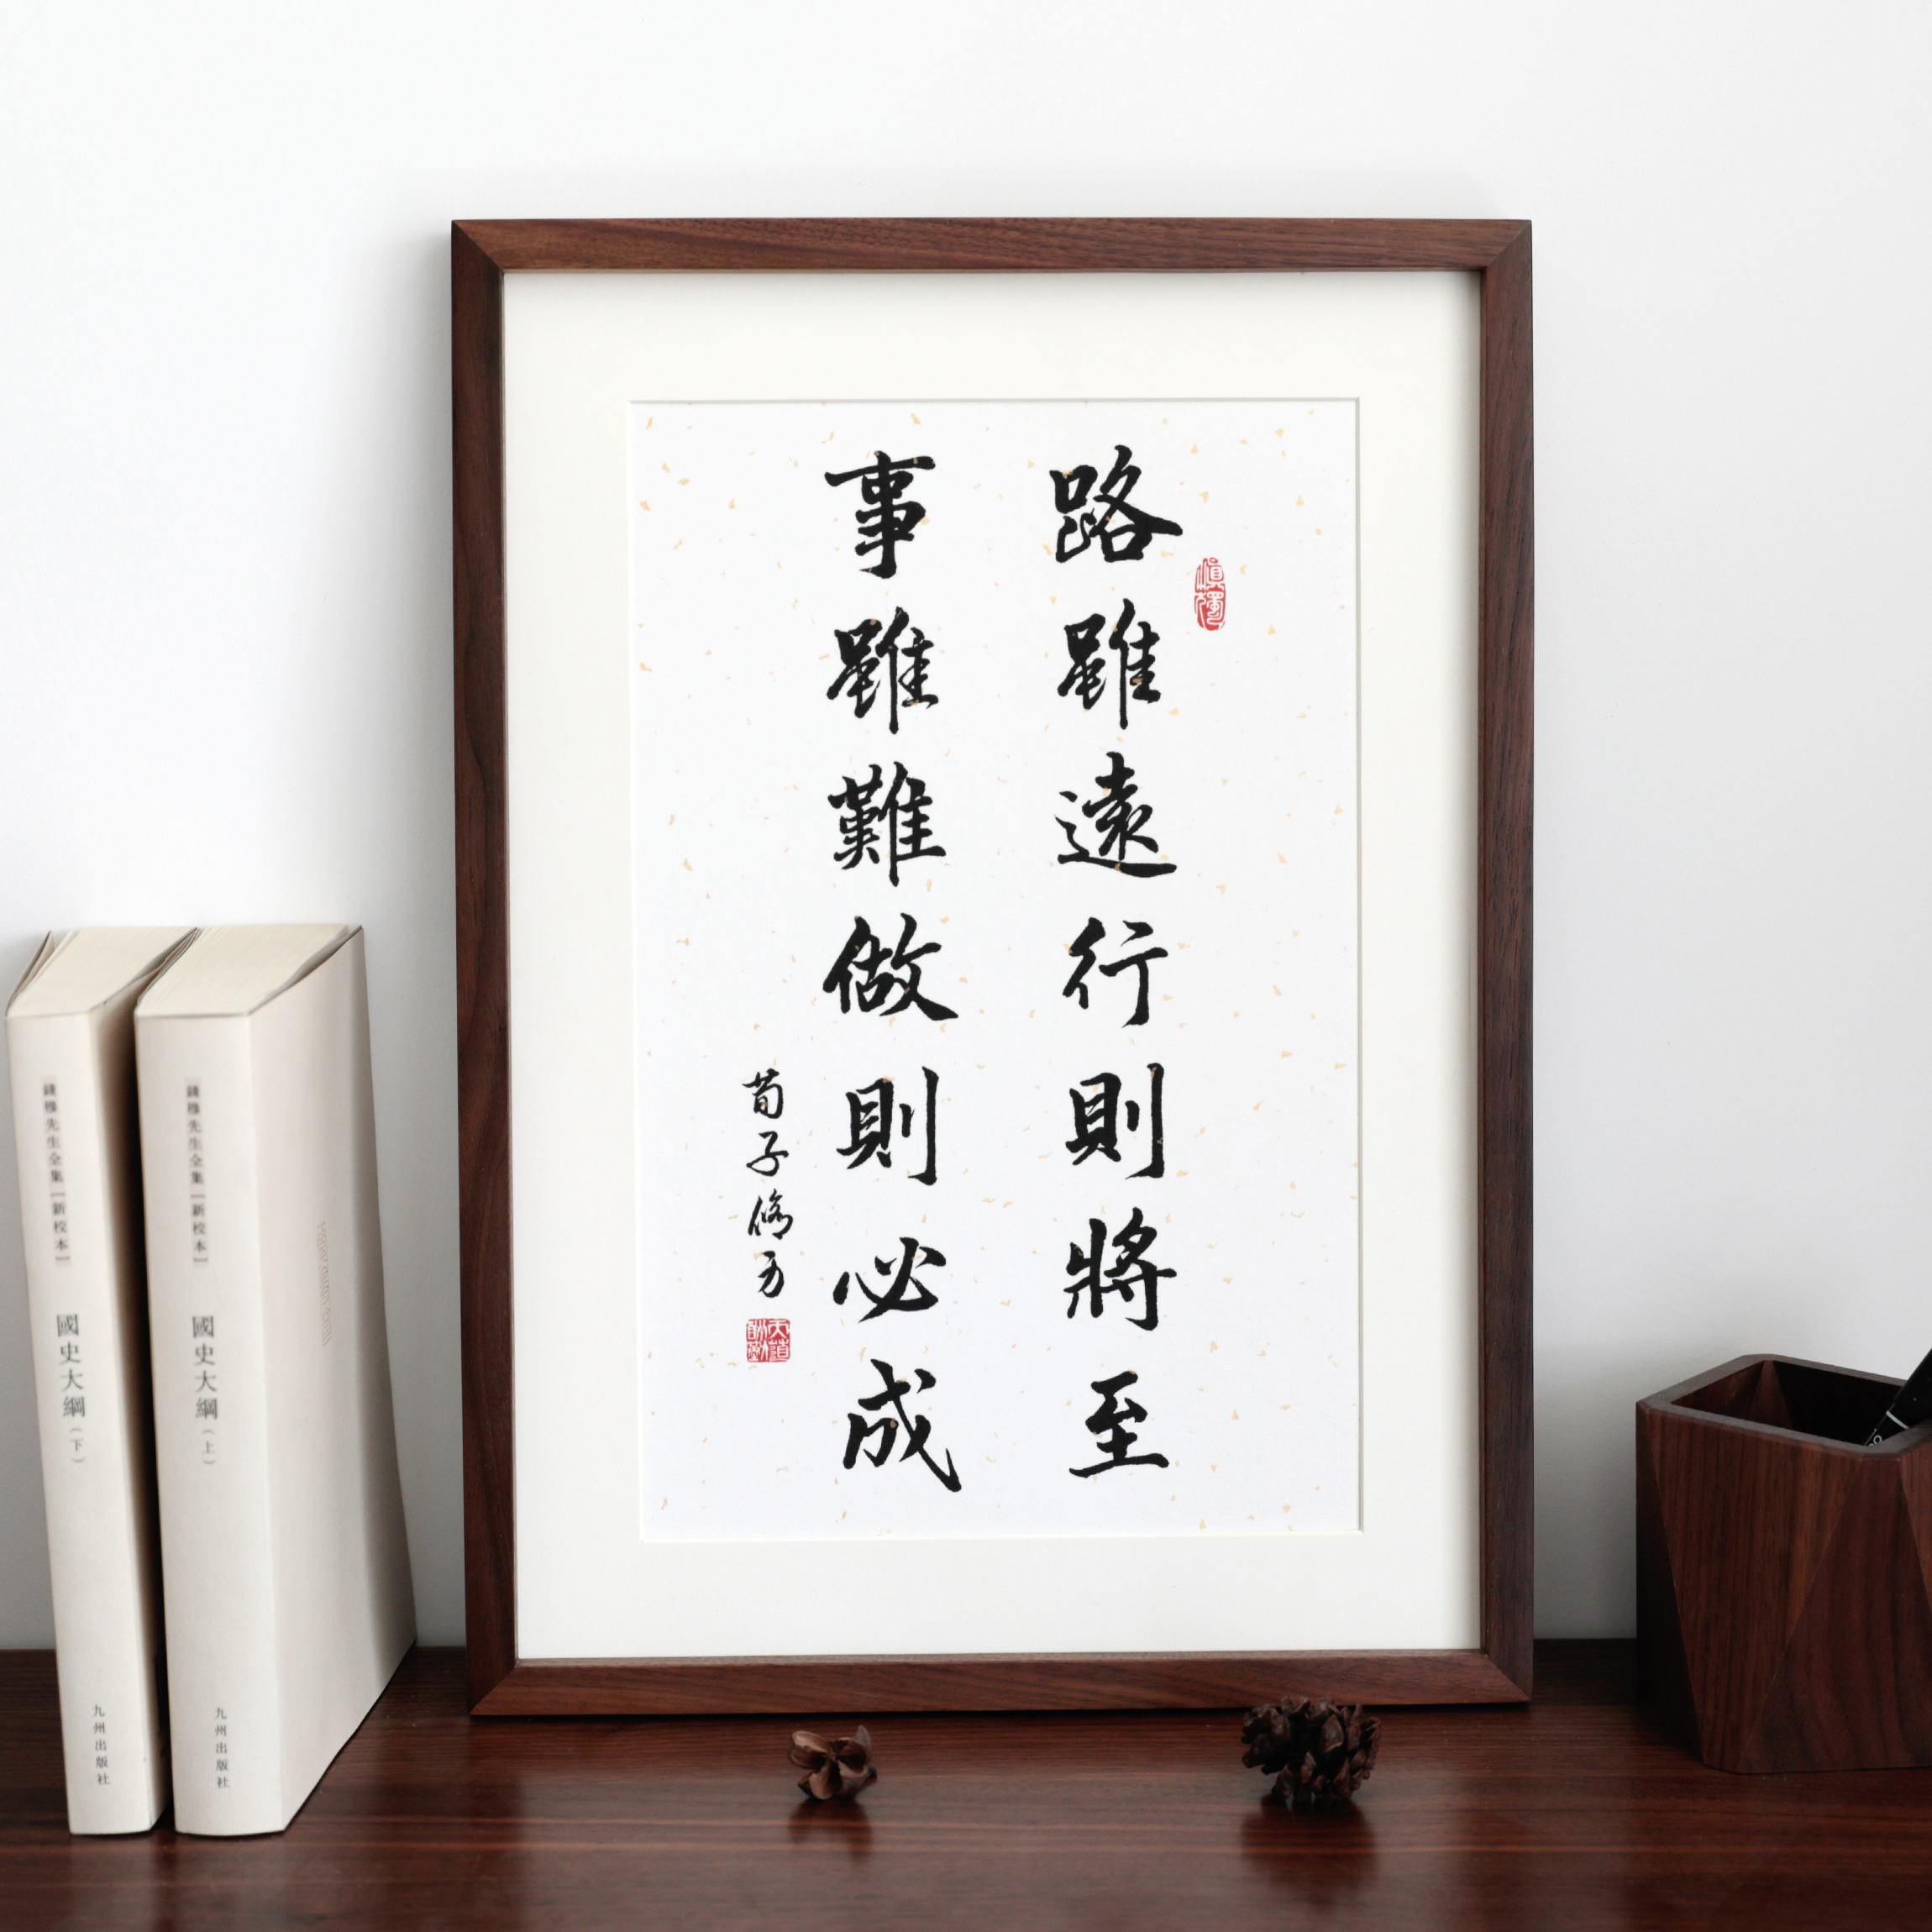 路雖遠行則將至
事雖難做則必成
荀子脩身
慎獨
天道酬勤
錢穆先生全集[新校本]
國史大綱(上)
九州出版社
錢穆先生全集[新校本]
國史大綱(下)
九州出版社